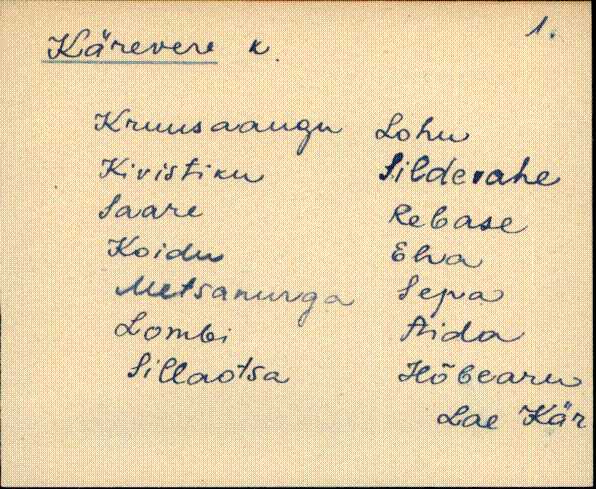 1.
Kärevere k.
Kruusaaugu Lohu
Kivistiku Silderahe
Saare Rebase
Koidu Elva
Metsanurga Sepa
Lombi Aida
Sillaotsa Hõbearu
Lae Kär